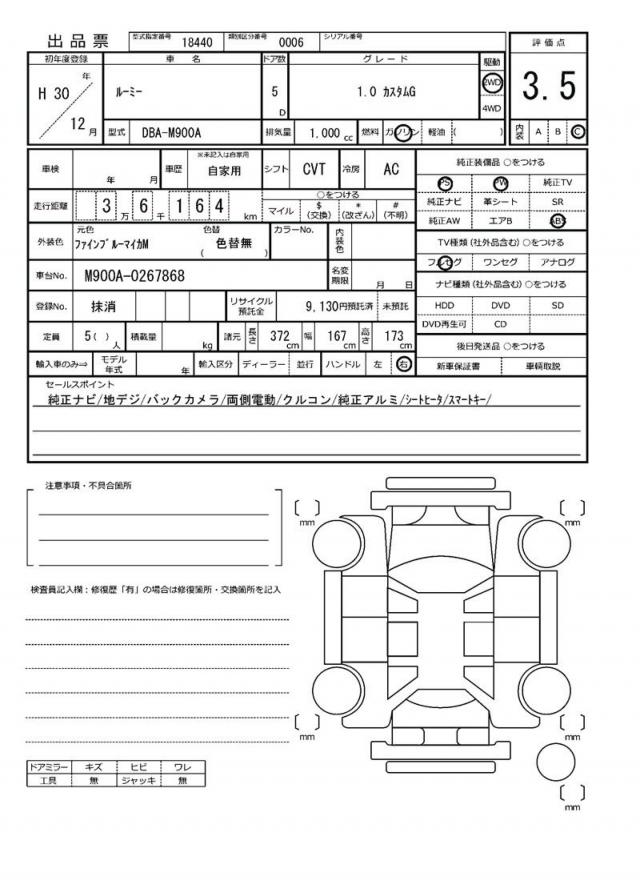 出品票
型式指定番号 18440 類別区分番号 0006 シリアル番号
評価点
3.5
初年度登録 車名 ドア数 グレード 駆動
H 30 年 12 月
ルーミー
5 D
1.0 カスタムG
2WD
4WD
型式 DBA-M900A 排気量 1,000 cc 燃料 ガソリン 軽油 ( )
内装 A B C
車検 年 月 車歴 ※未記入は自家用 自家用 シフト CVT 冷房 AC
走行距離 3 万 6 千 1 6 4 km
○をつける
マイル $ (交換) * (改ざん) # (不明)
外装色 元色 ファインブルーマイカM 色替 ( 色替無 ) カラーNo. 内装色
車台No. M900A-0267868 名変期限 月 日
登録No. 抹消 リサイクル預託金 9,130円預託済 未預託
定員 5( ) 人 積載量 kg 諸元 長さ 372 cm 幅 167 cm 高さ 173 cm
輸入車のみ⇒ モデル年式 年 輸入区分 ディーラー 並行 ハンドル 左 右
純正装備品 ○をつける
PS PW 純正TV
純正ナビ 革シート SR
純正AW エアB ABS
TV種類(社外品含む)○をつける
フルセグ ワンセグ アナログ
ナビ種類(社外品含む)○をつける
HDD DVD SD
DVD再生可 CD
後日発送品 ○をつける
新車保証書 車輌取説
セールスポイント
純正ナビ/地デジ/バックカメラ/両側電動/クルコン/純正アルミ/シートヒータ/スマートキー/
注意事項・不具合箇所
検査員記入欄：修復歴「有」の場合は修復箇所・交換箇所を記入
mm
mm
mm
mm
mm
ドアミラー キズ ヒビ ワレ
工具 無 ジャッキ 無